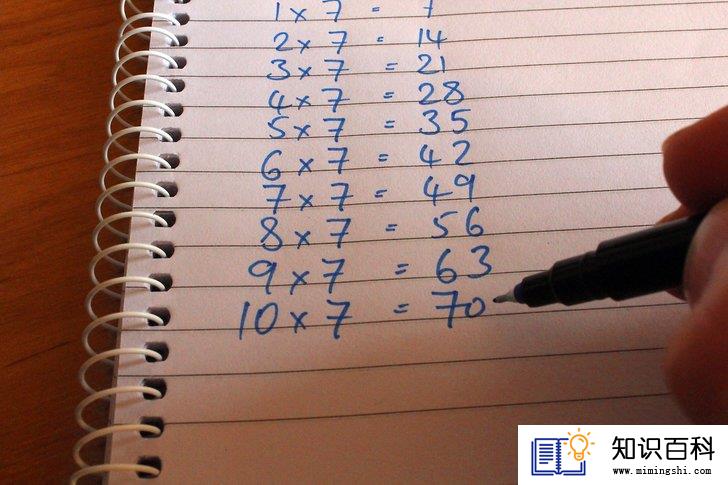 1 x 7 = 7
2 x 7 = 14
3 x 7 = 21
4 x 7 = 28
5 x 7 = 35
6 x 7 = 42
7 x 7 = 49
8 x 7 = 56
9 x 7 = 63
10 x 7 = 70
知识百科
www.mimingshi.com